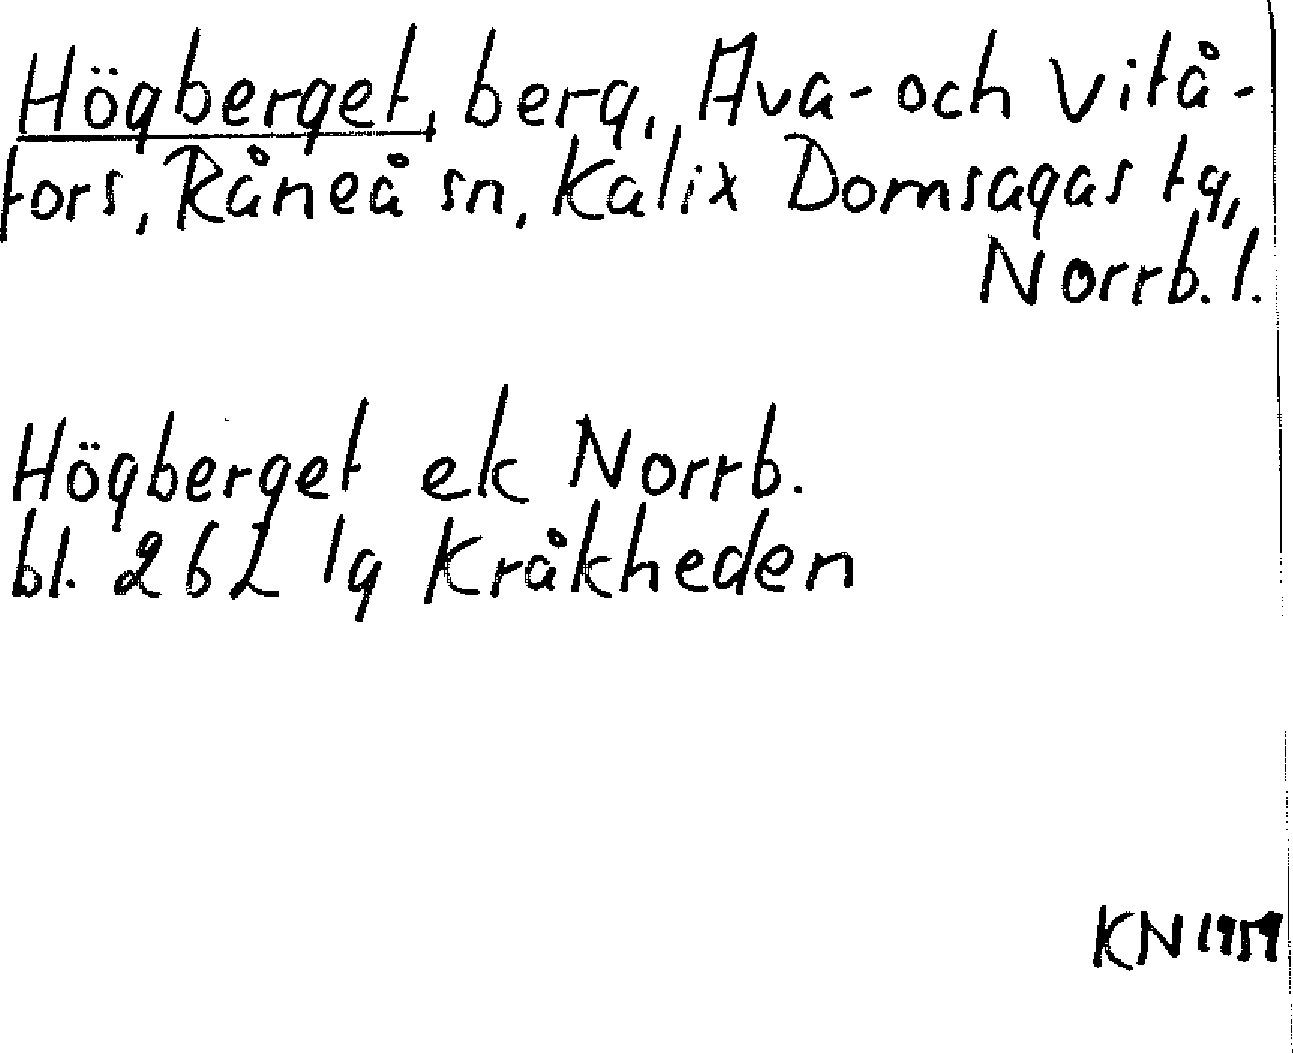 Högberget, berg, Ava- och Vitå-
fors, Råneå sn, Kalix Domsagas tg,
Norrb. l.
Högberget ek Norrb.
bl. 26L lg Kråkheden
KN 1959